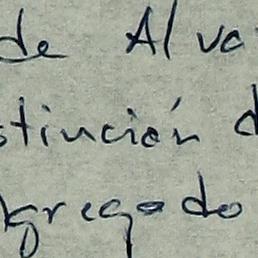 de Alva
stinción d
Agregado